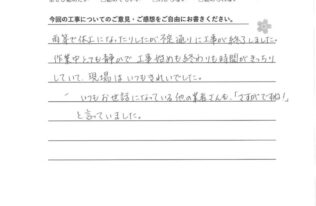 今回の工事についてのご意見・ご感想をご自由にお書きください。
雨等で休工になったりしたが予定通りに工事が終了しました。
作業中とても静かで工事始めも終わりも時間がきっちり
していて、現場はいつもきれいでした。
いつもお世話になっている他の業者さんも、「さすがですね!」
と言っていました。